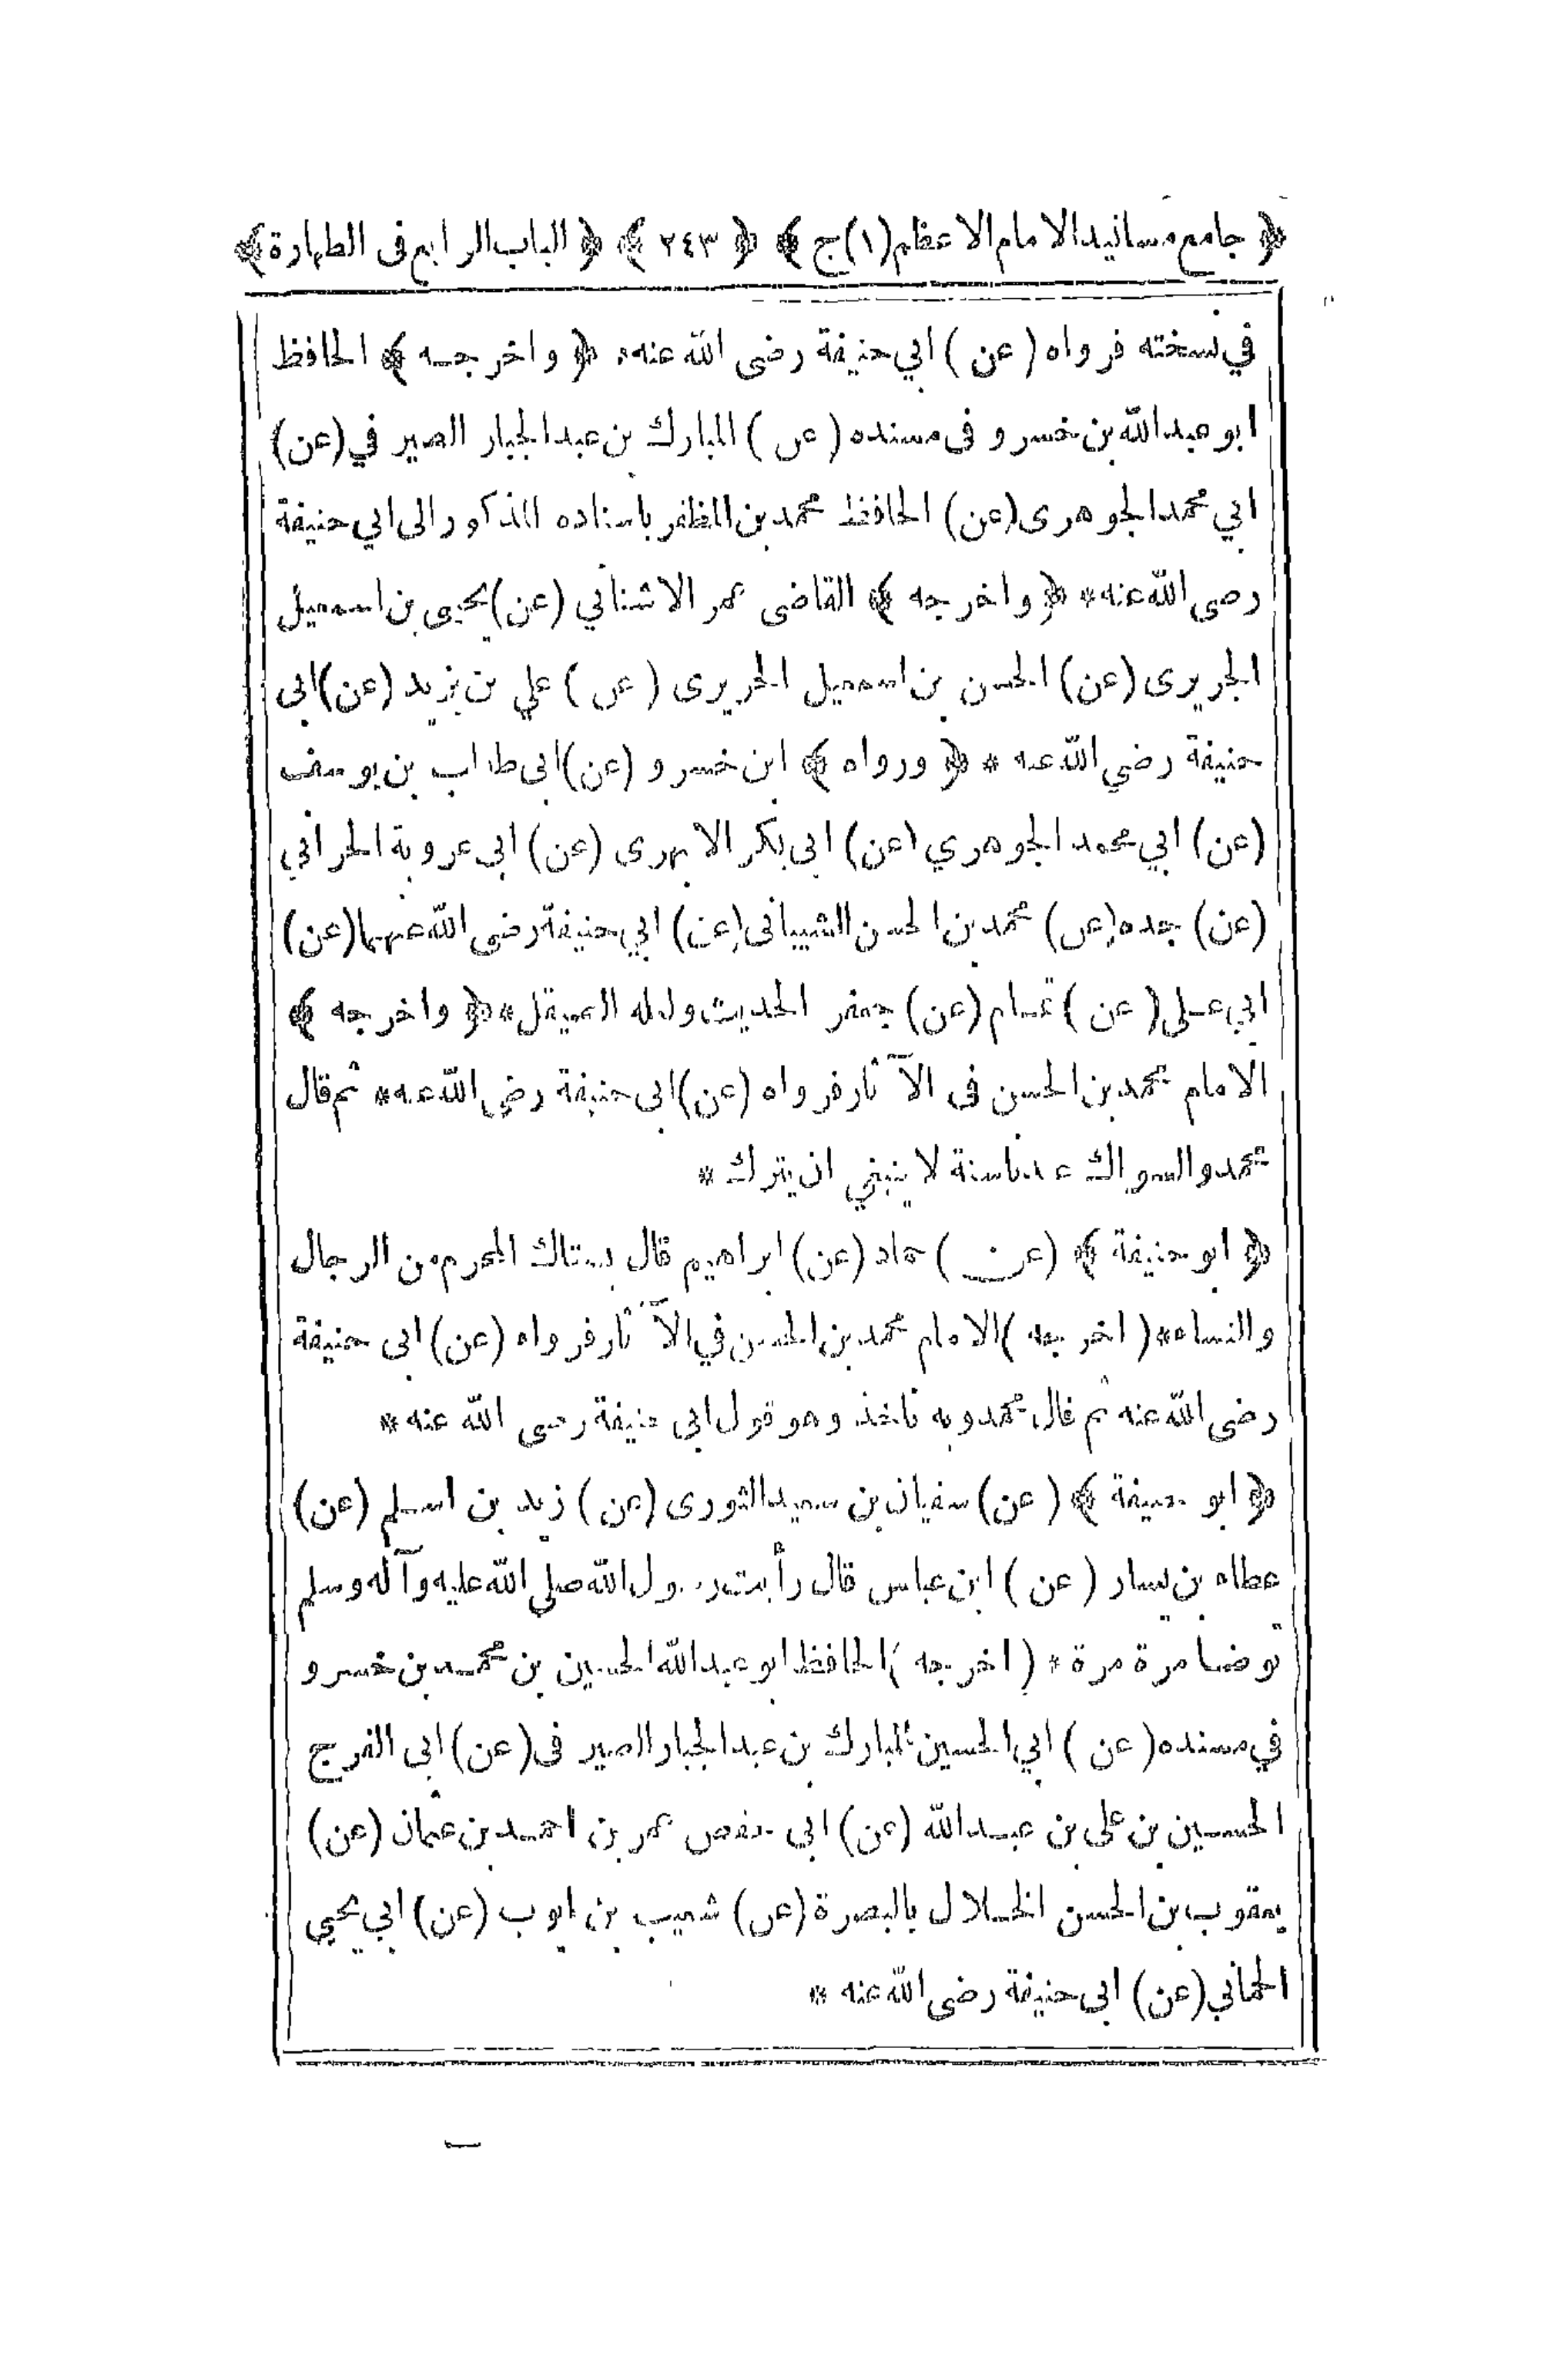 ﴿ جامع مسانيد الامام الاعظم (١) ج ﴾ ﴿ ٢٤٣ ﴾ ﴿ الباب الرابع فى الطهارة ﴾
في نسخته فرواه ( عن ) ابي حنيفة رضى الله عنه * ﴿ واخرجه ﴾ الحافظ
ابو عبد الله بن خسرو فى مسنده ( عن ) المبارك بن عبد الجبار الصيرفي (عن)
ابي محمد الجوهرى (عن) الحافظ محمد بن المظفر باسناده المذكور الى ابي حنيفة
رضى الله عنه * ﴿ واخرجه ﴾ القاضى عمر الاشناني (عن) يحيى بن اسمعيل
الجريرى (عن) الحسن بن اسمعيل الجريرى (عن) علي بن يزيد (عن) ابى
حنيفة رضي الله عنه * ﴿ ورواه ﴾ ابن خسرو (عن) ابى طالب بن يوسف
(عن) ابي محمد الجوهري (عن) ابى بكر الابهرى (عن) ابى عروبة الحراني
(عن) جده (عن) محمد بن الحسن الشيبانى (عن) ابي حنيفة رضى الله عنهما (عن)
ابي على ( عن ) تمام (عن) جعفر الحديث ولعله الصيقل * ﴿ واخرجه ﴾
الامام محمد بن الحسن فى الآثار فرواه (عن) ابى حنيفة رضي الله عنه * ثم قال
محمد والسواك عندنا سنة لا ينبغي ان يترك *
﴿ ابو حنيفة ﴾ (عن) حماد (عن) ابراهيم قال يستاك المحرم من الرجال
والنساء * ( اخرجه ) الامام محمد بن الحسن في الآثار فرواه (عن) ابى حنيفة
رضى الله عنه ثم قال محمد وبه ناخذ وهو قول ابى حنيفة رضى الله عنه *
﴿ ابو حنيفة ﴾ ( عن ) سفيان بن سعيد الثورى (عن) زيد بن اسلم (عن)
عطاء بن يسار ( عن ) ابن عباس قال رأيت رسول الله صلى الله عليه وآله وسلم
توضا مرة مرة * ( اخرجه ) الحافظ ابو عبد الله الحسين بن محمد بن خسرو
في مسنده ( عن ) ابي الحسين المبارك بن عبد الجبار الصيرفى (عن) ابى الفرج
الحسين بن على بن عبد الله (عن) ابى حفص عمر بن احمد بن عثمان (عن)
يعقوب بن الحسن الخلال بالبصرة (عن) شعيب بن ايوب (عن) ابي يحيي
الحماني (عن) ابى حنيفة رضى الله عنه *